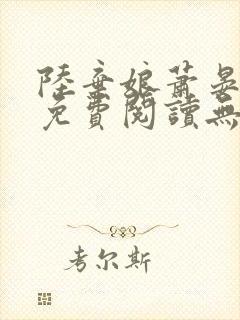 陸棄娘蕭晏
免費閱讀無
考尔斯